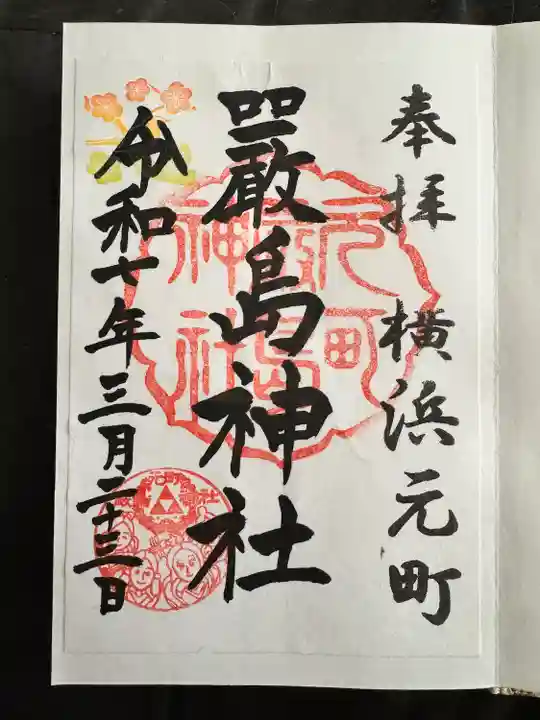 奉拝 横浜元町
嚴島神社
令和七年三月二十三日
元町
嚴島
神社